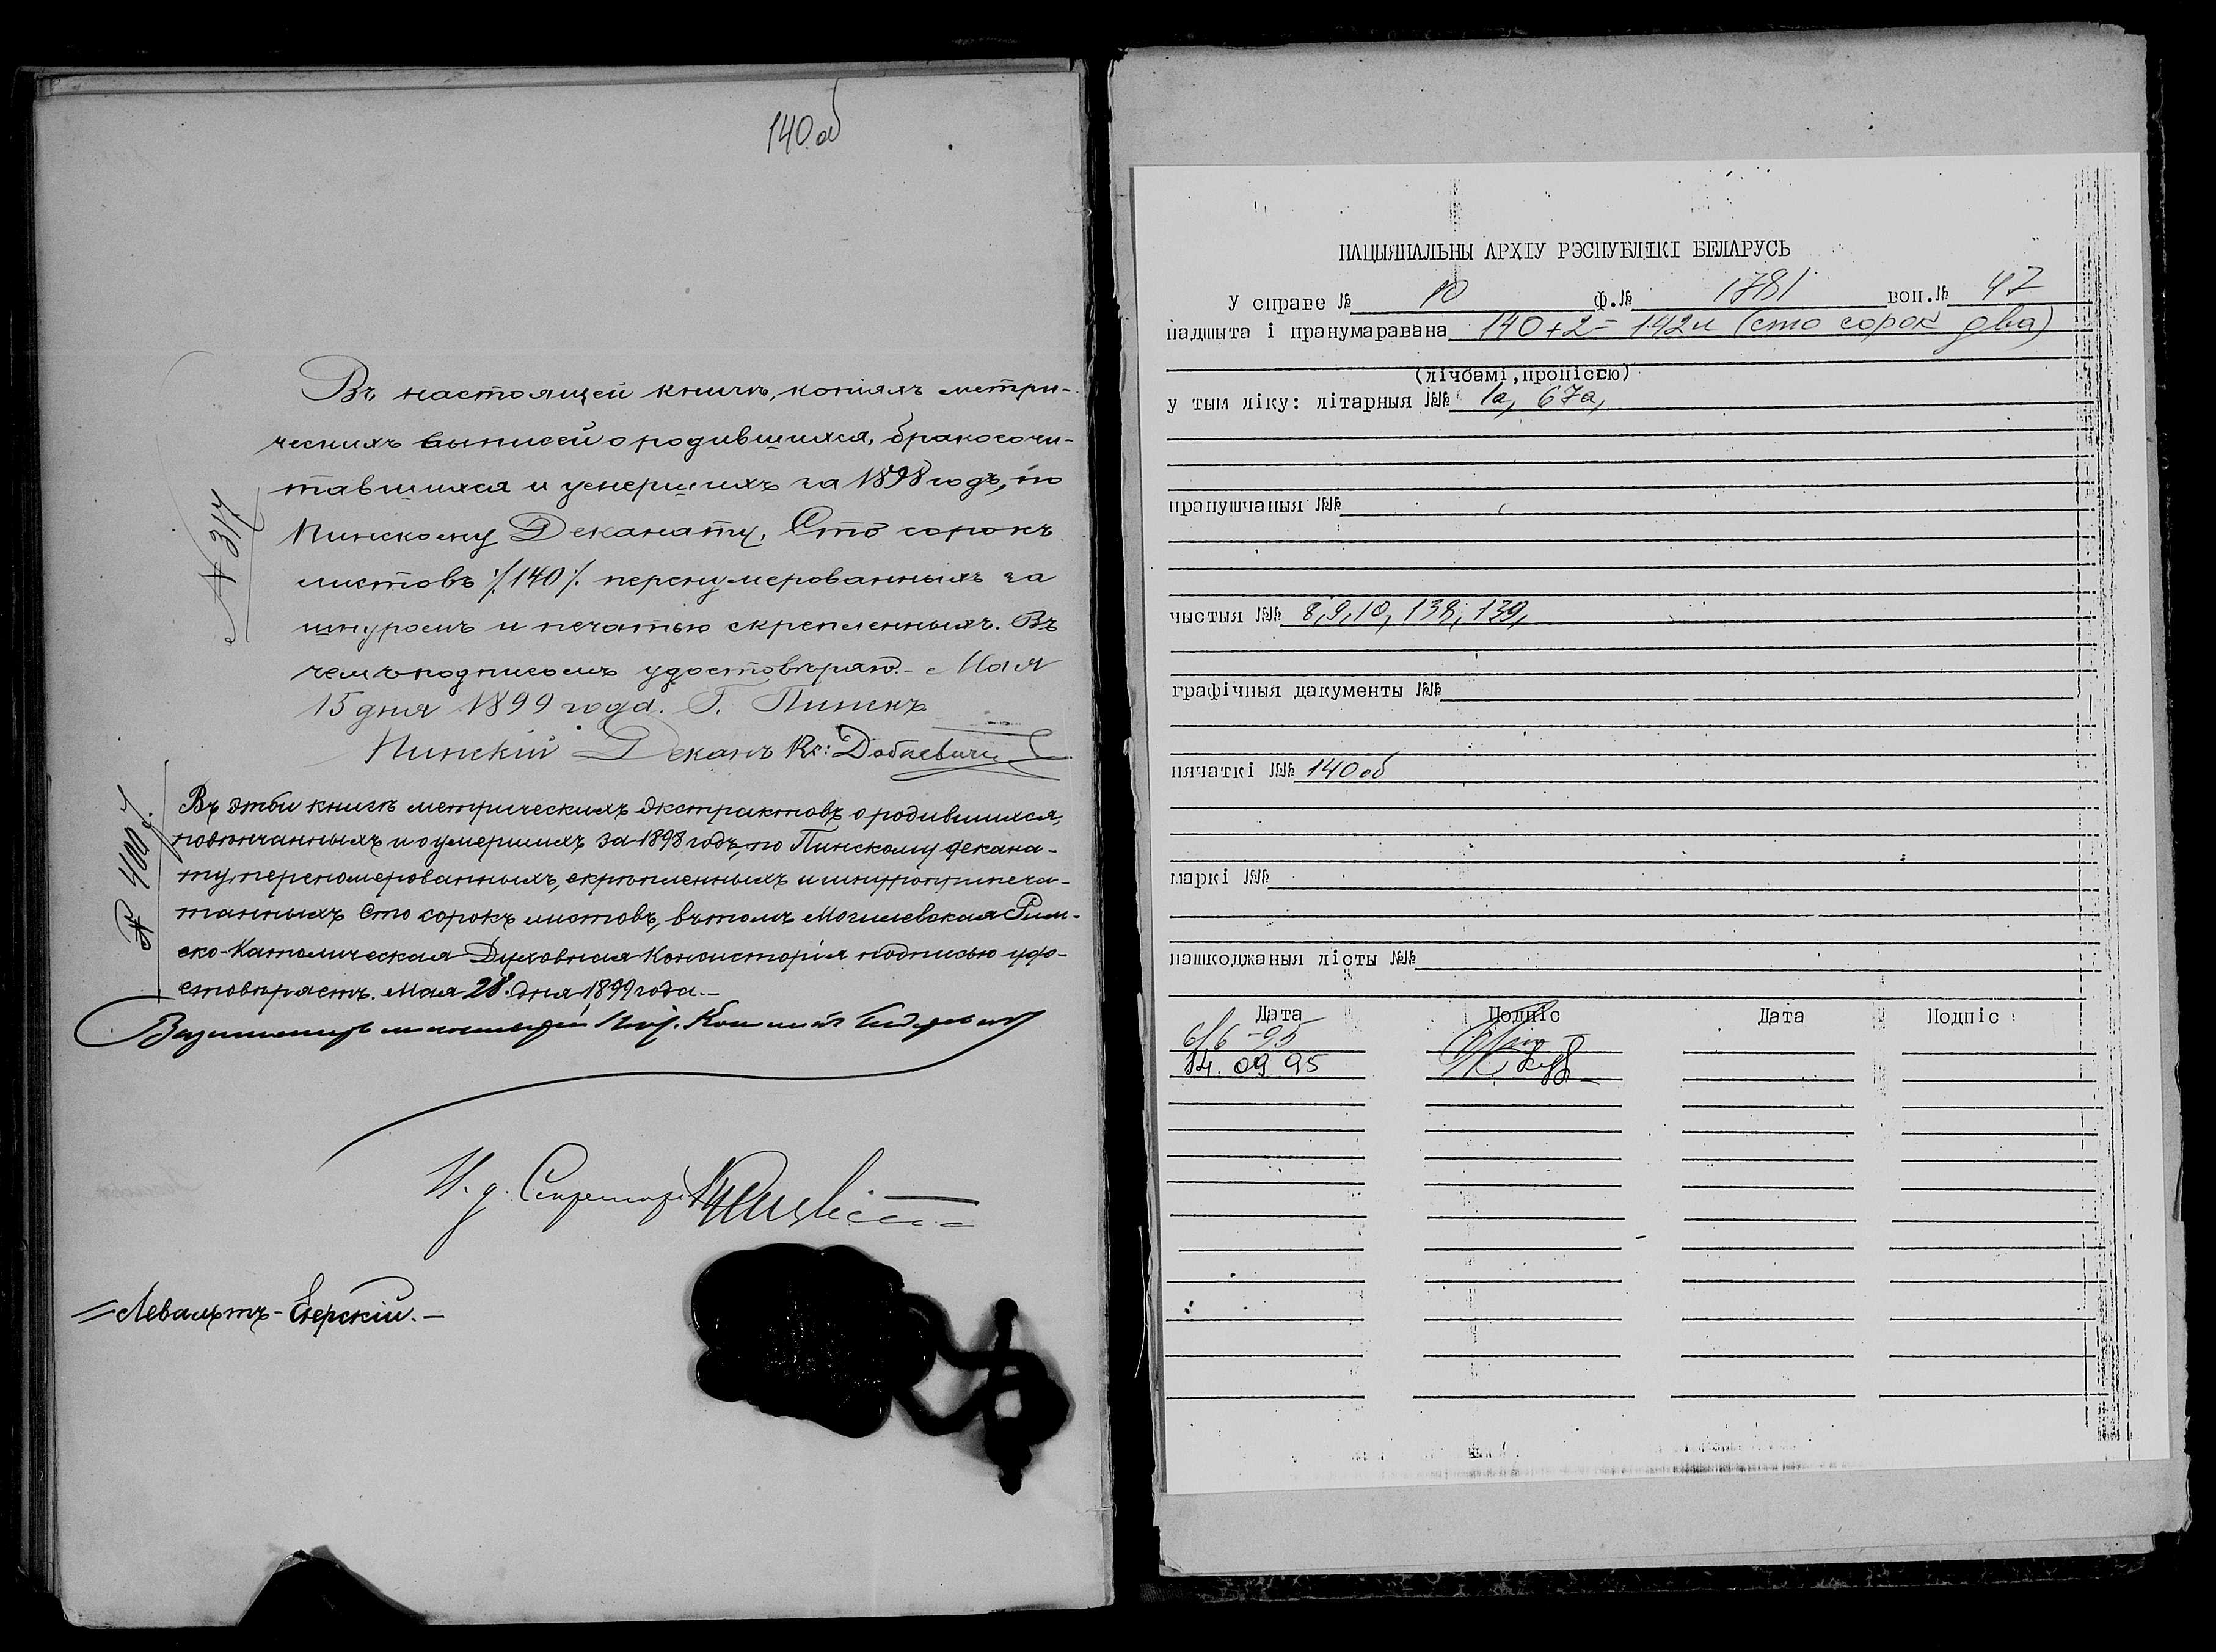 140 об
Въ настоящей книгѣ, копіяхъ метри-
ческихъ выписей о родившихся, бракосочи-
тавшихся и умершихъ за 1898 годъ, по
Пинскому Деканату, Сто сорокъ
листовъ ./.140./. перенумерованныхъ за
шнуромъ и печатью скрепленныхъ. Въ
чемъ подписомъ удостовѣряю. Мая
15 дня 1899 года. Г. Пинскъ
Пинскій Деканъ Кс:
№ 317
Въ этой книгѣ метрическихъ экстрактовъ о родившихся,
повѣнчанныхъ и о умершихъ за 1898 годъ, по Пинскому декана-
ту, переномерованныхъ, скрѣпленныхъ и шнуроприпеча-
танныхъ сто сорокъ листовъ, въ томъ Могилевская Рим-
ско-Католическая Духовная Консисторія подписью удо-
стовѣряетъ. Мая 28 дня 1899 года.-
И. д. Секретаря
Левальтъ-Езерскій.-
НАЦЫЯНАЛЬНЫ АРХІУ РЭСПУБЛІКІ БЕЛАРУСЬ
У справе № 10 ф.№ 1781 воп.№ 47
падшыта і пранумаравана 140+2= 142 л (сто сорок два)
(лічбамі,пропіссю)
у тым ліку: літарныя №№ 1а, 67а,
прапушчаныя №№
чыстыя №№ 8,9,10, 138, 139,
графічныя дакументы №№
пячаткі №№ 140 об
маркі №№
пашкоджаныя лісты №№
Дата Подпіс Дата Подпіс
6/6-95
14. 09 95